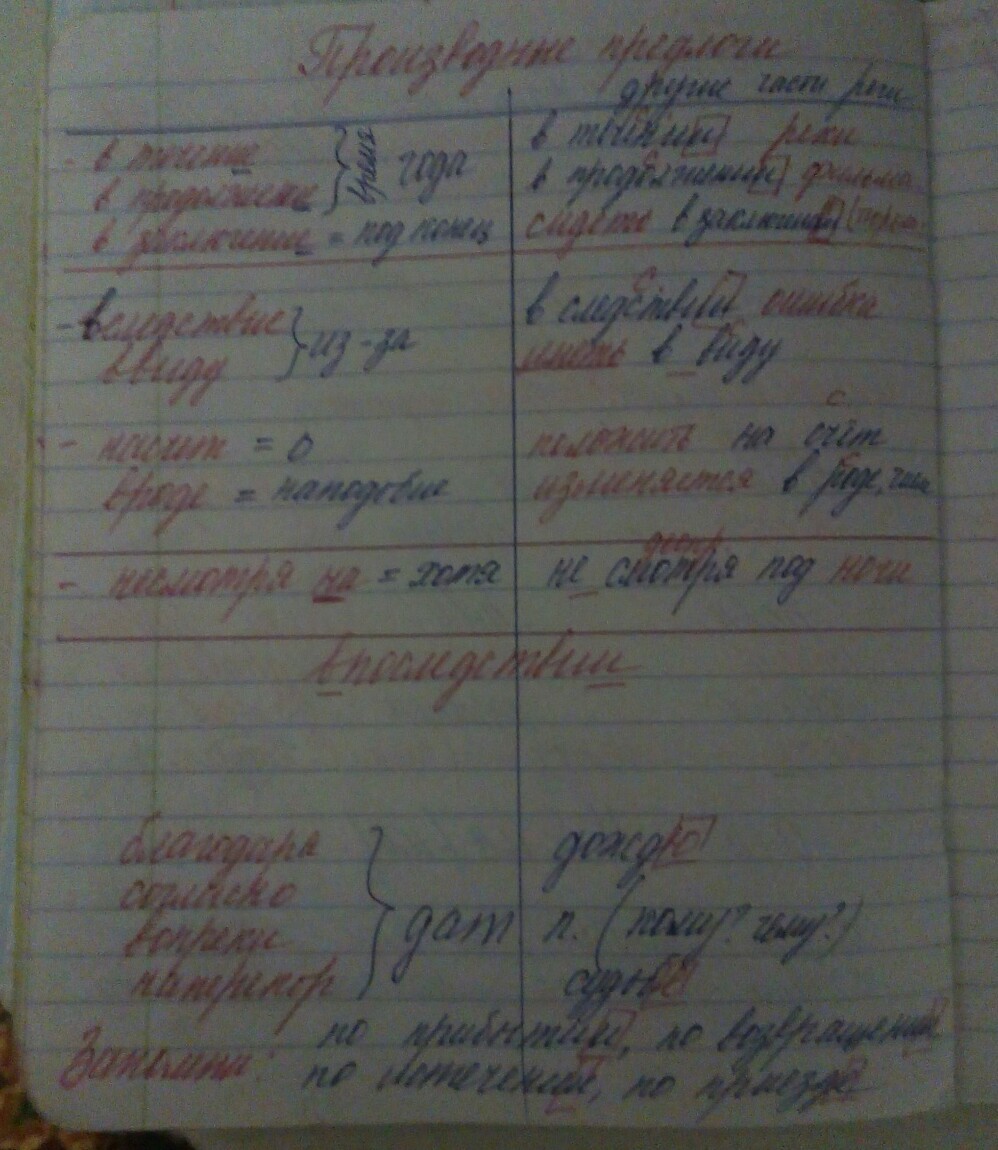 Производные предлоги
другие части речи
- в течение } время года в течении реки
в продолжение в продолжении фильма
в заключение = под конец сидеть в заключении
- вследствие } из-за в следствии ошибка
ввиду иметь в виду
- насчет = о положить на счёт
вроде = наподобие изменяется в роде, числе
- несмотря на = хотя не смотря под ноги
впоследствии
благодаря дождю
согласно } дат п. (кому? чему?)
вопреки
наперекор судьбе
Запомни: по прибытии, по возвращении
по истечении, по приезде